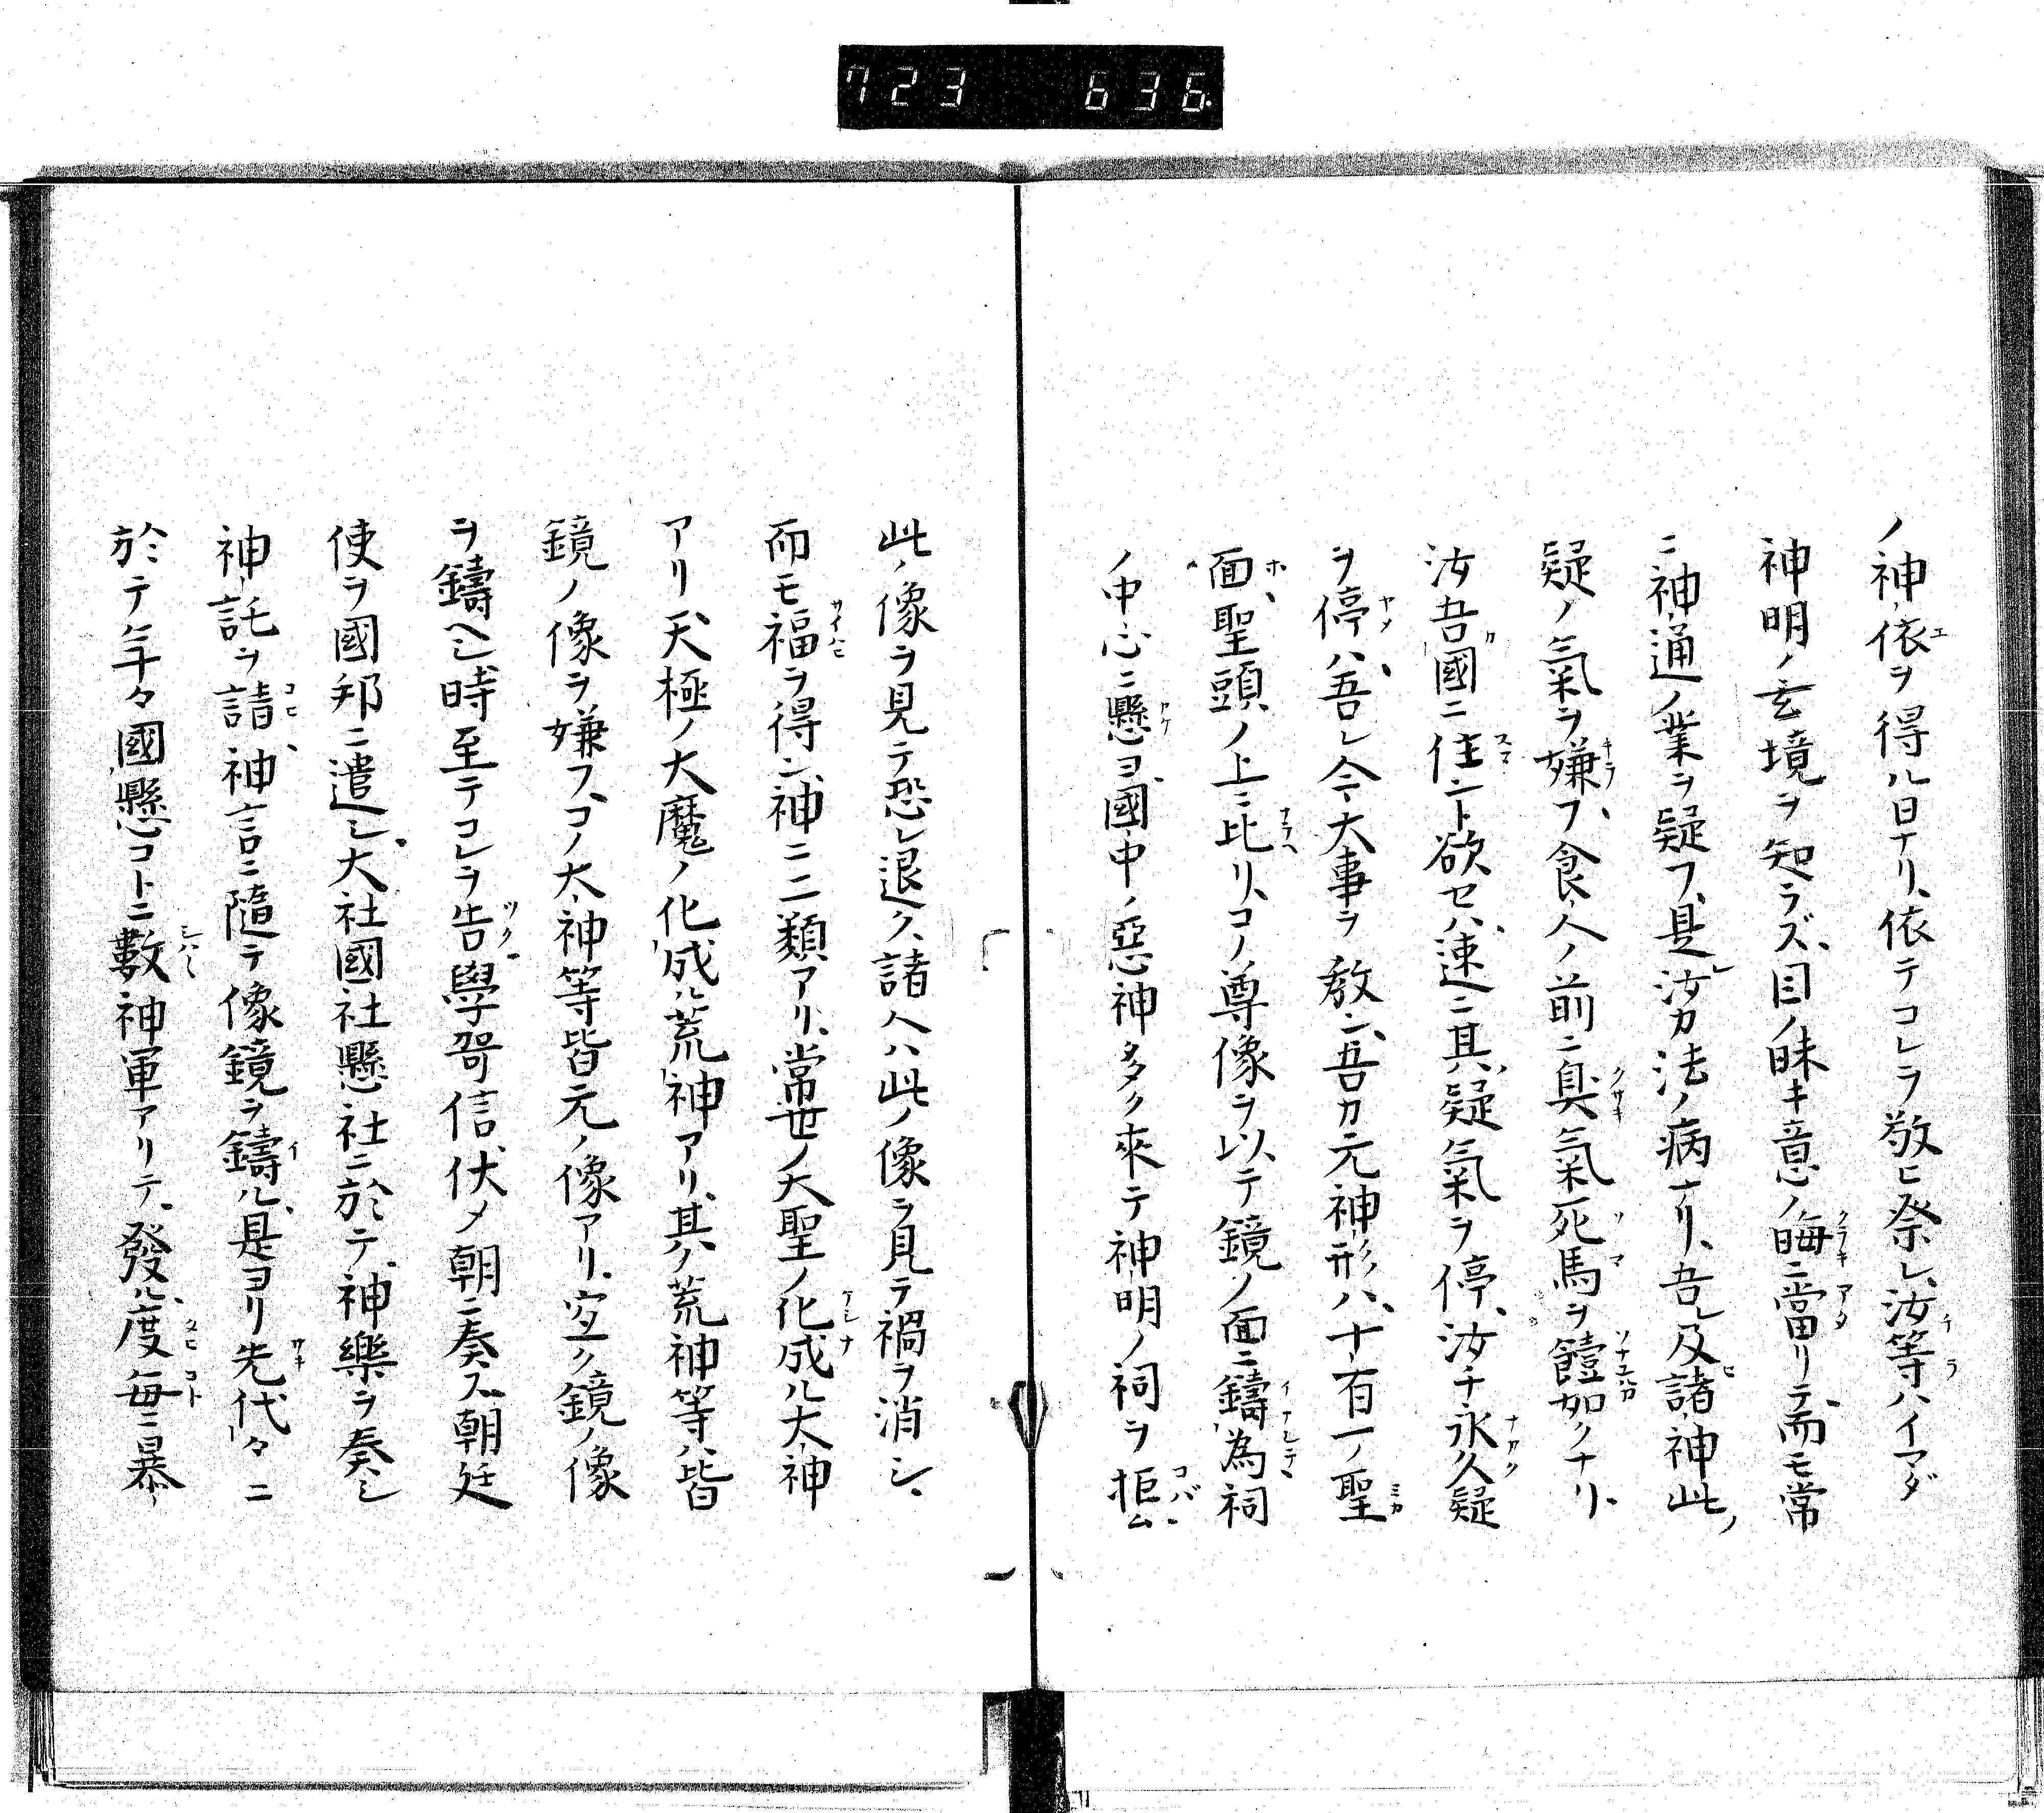 723 636
ノ神依ヲ得ル日ナリ、依テコレヲ敬ヒ祭レ、汝等ハイマダ
神明ノ玄境ヲ知ラズ、目ノ昧キ意ノ晦ニ當リテ、而モ常
ニ神通ノ業ヲ疑フ、是レ汝カ法ノ病ナリ、吾レ及諸神此ノ
疑ノ氣ヲ嫌フ、食人ノ前ニ臭氣死馬ヲ饐如クナリ、
汝吾國ニ住ント欲セハ、速ニ其疑氣ヲ停、汝チ永久疑
ヲ停ハ、吾レ今大事ヲ教ン、吾カ元神形ハ、十有一ノ聖
面、聖頭ノ上ニ比リ、コノ尊像ヲ以テ鏡ノ面ニ鑄為祠
ノ中心ニ懸ヨ、國中ノ惡神多ク來テ神明ノ祠ヲ拒ム
此ノ像ヲ見テ恐レ退ク、諸人ハ此ノ像ヲ見テ禍ヲ消シ、
而モ福ヲ得ン、神ニ二類アリ、常世ノ大聖ノ化成ル大神
アリ、天極ノ大魔ノ化成ル荒神アリ、其ノ荒神等ハ皆
鏡ノ像ヲ嫌フ、コノ大神等皆元ノ像アリ、空ク鏡ノ像
ヲ鑄ヘシ、時至テコレヲ告、學哿信伏メ朝ニ奏ス、朝廷
使ヲ國邦ニ遣シ、大社國社懸社ニ於テ、神樂ヲ奏シ
神託ヲ請、神言ニ隨テ像鏡ヲ鑄ル、是ヨリ先代々ニ
於テ年々國懸コトニ數神軍アリテ、發ル度毎ニ暴